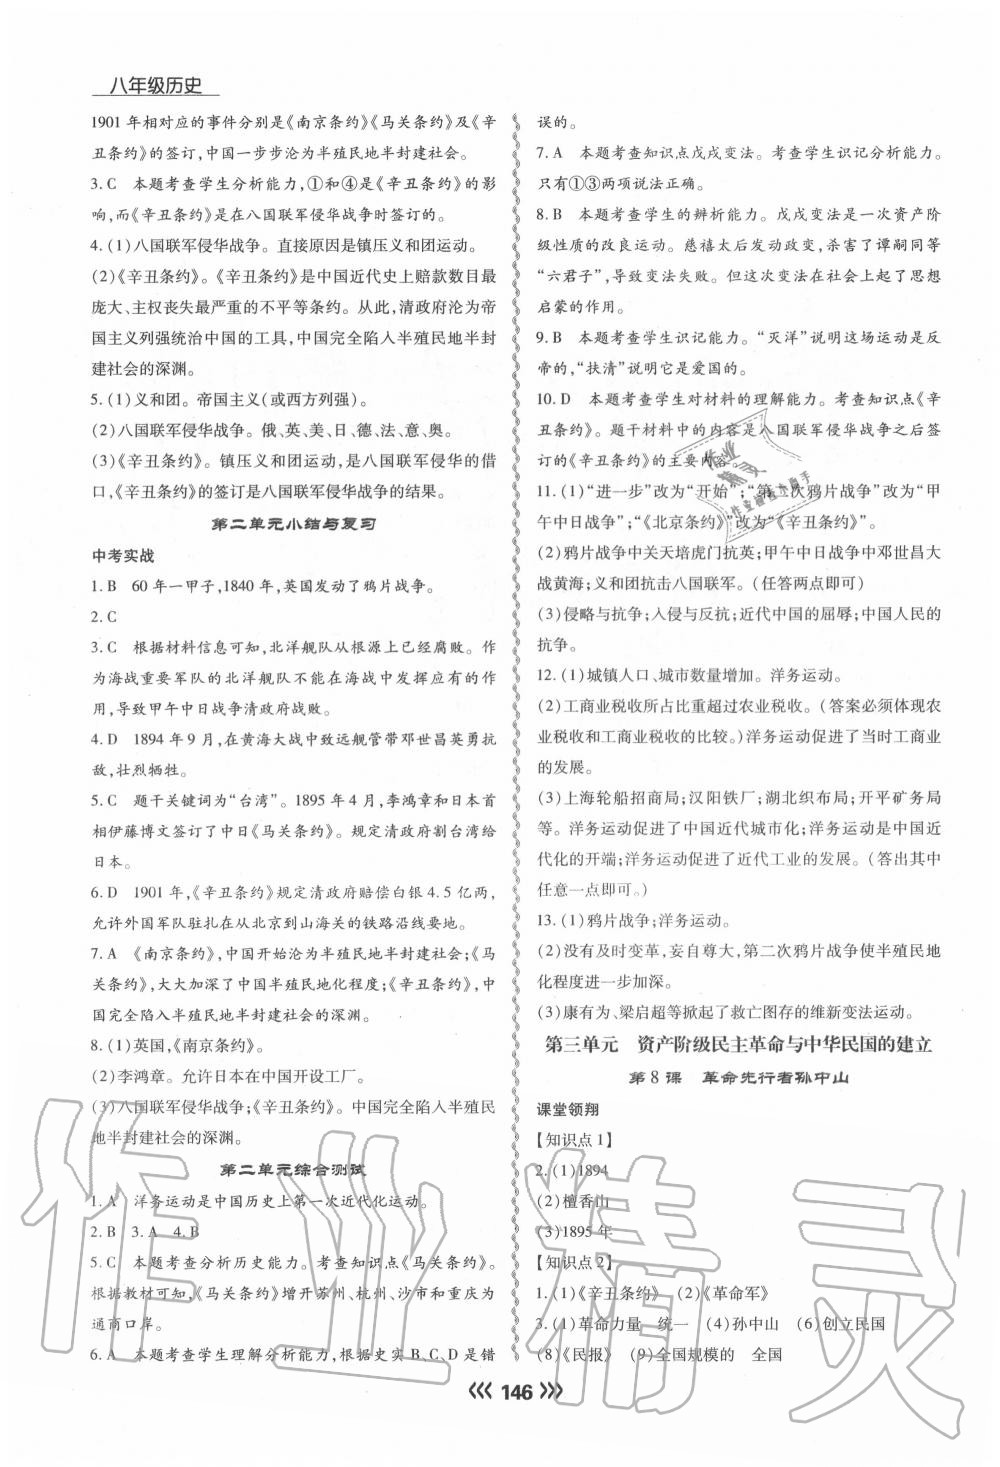 八年级历史
1901年相对应的事件分别是《南京条约》《马关条约》及《辛
丑条约》的签订,中国一步步沦为半殖民地半封建社会。
3.C 本题考查学生分析能力,①和④是《辛丑条约》的影
响,而《辛丑条约》是在八国联军侵华战争时签订的。
4.(1)八国联军侵华战争。直接原因是镇压义和团运动。
(2)《辛丑条约》。《辛丑条约》是中国近代史上赔款数目最
庞大、主权丧失最严重的不平等条约。从此,清政府沦为帝
国主义列强统治中国的工具,中国完全陷入半殖民地半封
建社会的深渊。
5.(1)义和团。帝国主义(或西方列强)。
(2)八国联军侵华战争。俄、英、美、日、德、法、意、奥。
(3)《辛丑条约》。镇压义和团运动,是八国联军侵华的借
口,《辛丑条约》的签订是八国联军侵华战争的结果。
第二单元小结与复习
中考实战
1.B 60年一甲子,1840年,英国发动了鸦片战争。
2.C
3.C 根据材料信息可知,北洋舰队从根源上已经腐败。作
为海战重要军队的北洋舰队在海战中发挥应有的作
用,导致甲午中日战争清政府战败。
4.D 1894年9月,在黄海大战中致远舰管带邓世昌英勇抗
敌,壮烈牺牲。
5.C 题干关键词为“台湾”。1895年4月,李鸿章和日本首
相伊藤博文签订了中日《马关条约》。规定清政府割台湾给
日本。
6.D 1901年,《辛丑条约》规定清政府赔偿白银4.5亿两,
允许外国军队驻扎在从北京到山海关的铁路沿线要地。
7.A 《南京条约》,中国开始沦为半殖民地半封建社会;《马
关条约》,大大加深了中国半殖民地化程度;《辛丑条约》,中
国完全陷入半殖民地半封建社会的深渊。
8.(1)英国,《南京条约》。
(2)李鸿章。允许日本在中国开设工厂。
(3)八国联军侵华战争;《辛丑条约》。中国完全陷入半殖民
地半封建社会的深渊。
第二单元综合测试
1.A 洋务运动是中国历史上第一次近代化运动。
2.B 3.A 4.B
5.C 本题考查分析历史能力。考查知识点《马关条约》。
根据教材可知,《马关条约》增开苏州、杭州、沙市和重庆为
通商口岸。
6.A 本题考查学生理解分析能力,根据史实B、C、D是错
误的。
7.A 本题考查知识点戊戌变法。考查学生识记分析能力。
只有①③两项说法正确。
8.B 本题考查学生的辨析能力。戊戌变法是一次资产阶
级性质的改良运动。慈禧太后发动政变,杀害了谭嗣同等
“六君子”,导致变法失败。但这次变法在社会上起了思想
启蒙的作用。
9.B 本题考查学生识记能力。“灭洋”说明这场运动是反
帝的,“扶清”说明它是爱国的。
10.D 本题考查学生对材料的理解能力。考查知识点《辛
丑条约》。题干材料中的内容是八国联军侵华战争之后签
订的《辛丑条约》的主要内容。
11.(1)“进一步”改为“开始”;“第二次鸦片战争”改为“甲
午中日战争”;“《北京条约》”改为《辛丑条约》。
(2)鸦片战争中关天培虎门抗英;甲午中日战争中邓世昌大
战黄海;义和团抗击八国联军。(任答两点即可)
(3)侵略与抗争;入侵与反抗;近代中国的屈辱;中国人民的
抗争。
12.(1)城镇人口、城市数量增加。洋务运动。
(2)工商业税收所占比重超过农业税收。(答案必须体现农
业税收和工商业税收的比较。)洋务运动促进了当时工商业
的发展。
(3)上海轮船招商局;汉阳铁厂;湖北织布局;开平矿务局
等。洋务运动促进了中国近代城市化;洋务运动是中国近
代化的开端;洋务运动促进了近代工业的发展。(答出其中
任意一点即可。)
13.(1)鸦片战争;洋务运动。
(2)没有及时变革,妄自尊大,第二次鸦片战争使半殖民地
化程度进一步加深。
(3)康有为、梁启超等掀起了救亡图存的维新变法运动。
第三单元 资产阶级民主革命与中华民国的建立
第8课 革命先行者孙中山
课堂领翔
【知识点1】
2.(1)1894
(2)檀香山
(3)1895年
【知识点2】
1.(1)《辛丑条约》 (2)《革命军》
3.(1)革命力量 统一 (4)孙中山 (6)创立民国
(8)《民报》 (9)全国规模的 全国
146
作业精灵